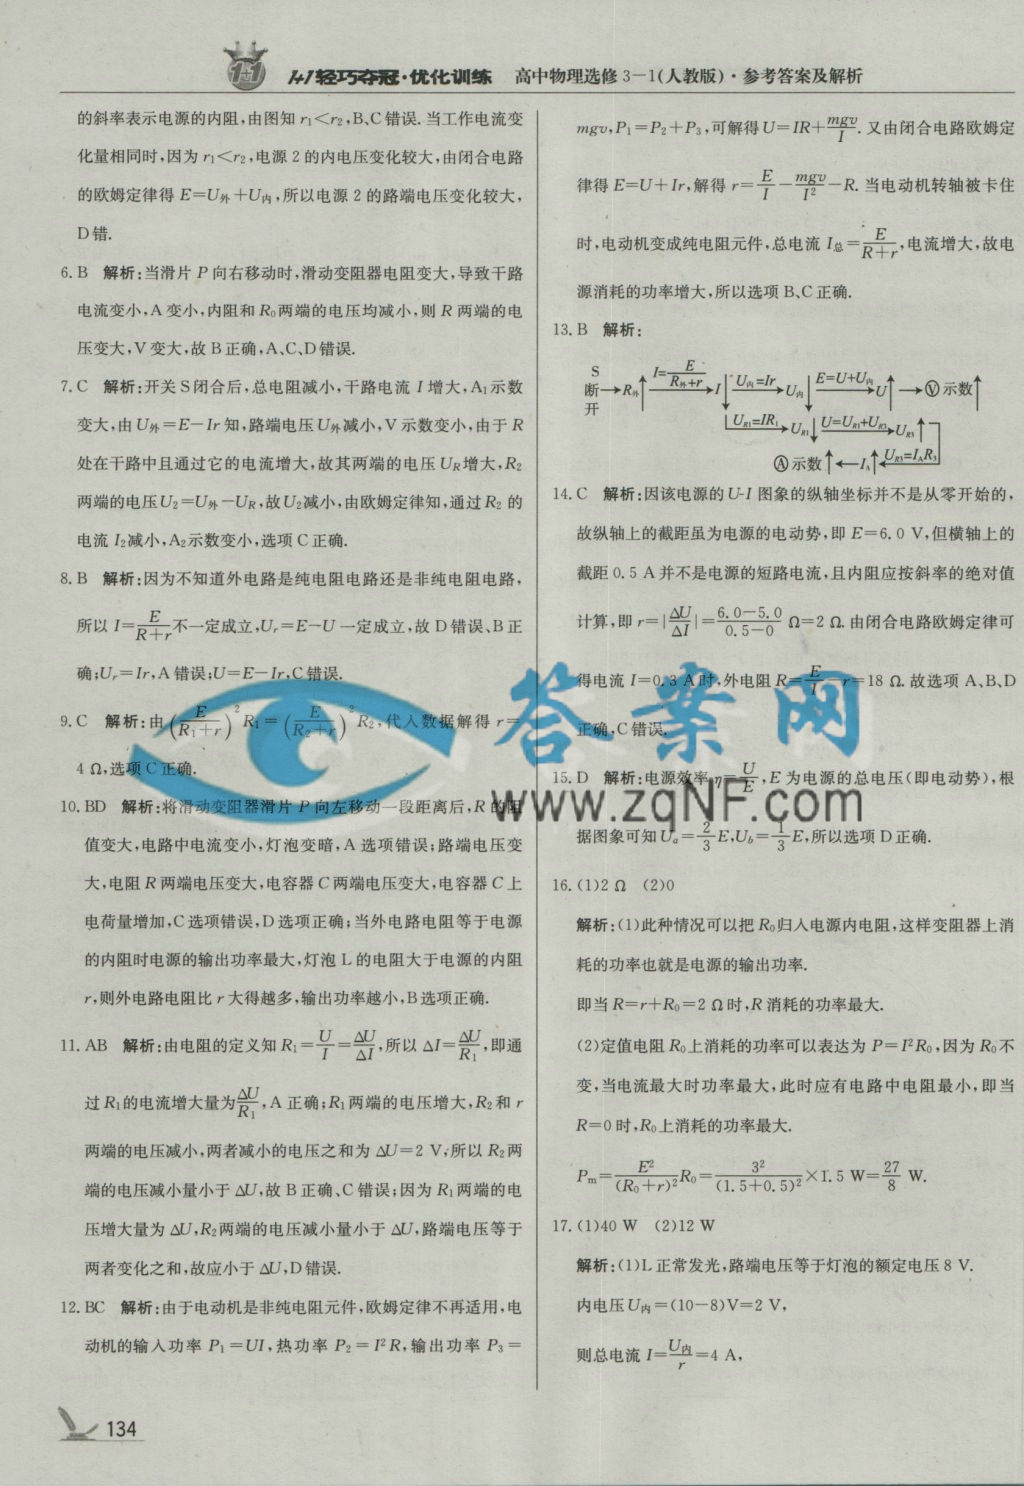 1+1轻巧夺冠·优化训练 高中物理选修3-1(人教版)·参考答案及解析
的斜率表示电源的内阻,由图知 r₁<r₂,B、C错误.当工作电流变
化量相同时,因为 r₁<r₂,电源 2 的内电压变化较大,由闭合电路
的欧姆定律得 E=U外+U内,所以电源 2 的路端电压变化较大,
D错.
6. B 解析:当滑片 P 向右移动时,滑动变阻器电阻变大,导致干路
电流变小,A变小,内阻和R₀两端的电压均减小,则 R 两端的电
压变大,V变大,故B正确,A、C、D错误.
7. C 解析:开关S闭合后,总电阻减小,干路电流 I 增大,A₁示数
变大,由 U外=E-Ir 知,路端电压U外减小,V示数变小,由于 R
处在干路中且通过它的电流增大,故其两端的电压 UR增大,R₂
两端的电压U₂=U外-UR,故U₂减小,由欧姆定律知,通过R₂ 的
电流 I₂减小,A₂示数变小,选项C正确.
8. B 解析:因为不知道外电路是纯电阻电路还是非纯电阻电路,
所以 I=E/(R+r)不一定成立,Ur=E-U一定成立,故D错误、B正
确;Ur=Ir,A错误;U=E-Ir,C错误.
9. C 解析:由(E/(R₁+r))²R₁=(E/(R₂+r))²R₂,代入数据解得 r=
4 Ω,选项C正确.
10. BD 解析:将滑动变阻器滑片 P 向左移动一段距离后,R 的阻
值变大,电路中电流变小,灯泡变暗,A选项错误;路端电压变
大,电阻R两端电压变大,电容器C两端电压变大,电容器C上
电荷量增加,C选项错误,D选项正确;当外电路电阻等于电源
的内阻时电源的输出功率最大,灯泡L的电阻大于电源的内阻
r,则外电路电阻比 r 大得越多,输出功率越小,B选项正确.
11. AB 解析:由电阻的定义知 R₁=U/I=ΔU/ΔI,所以 ΔI=ΔU/R₁,即通
过R₁的电流增大量为ΔU/R₁,A正确;R₁两端的电压增大,R₂和 r
两端的电压减小,两者减小的电压之和为 ΔU=2 V,所以 R₂两
端的电压减小量小于 ΔU,故B正确、C错误;因为 R₁两端的电
压增大量为 ΔU,R₂两端的电压减小量小于 ΔU,路端电压等于
两者变化之和,故应小于 ΔU,D错误.
12. BC 解析:由于电动机是非纯电阻元件,欧姆定律不再适用,电
动机的输入功率 P₁=UI,热功率 P₂=I²R,输出功率 P₃=
mgv,P₁=P₂+P₃,可解得U=IR+mgv/I.又由闭合电路欧姆定
律得 E=U+Ir,解得 r=E/I-mgv/I²-R.当电动机转轴被卡住
时,电动机变成纯电阻元件,总电流 I总=E/(R+r),电流增大,故电
源消耗的功率增大,所以选项B、C正确.
13. B 解析:
S断开→R外↑ I=E/(R外+r)→I↓ U内=Ir→U内↓ E=U+U内→U↑→Ⓥ示数↑
UR1=IR₁→UR1↓ U=UR1+UR3→UR3↑
Ⓐ示数↑←IA↑ UR3=IAR₃
14. C 解析:因该电源的U-I 图象的纵轴坐标并不是从零开始的,
故纵轴上的截距虽为电源的电动势,即 E=6.0 V,但横轴上的
截距 0.5 A并不是电源的短路电流,且内阻应按斜率的绝对值
计算,即 r=|ΔU/ΔI|=(6.0-5.0)/(0.5-0) Ω=2 Ω.由闭合电路欧姆定律可
得电流 I=0.3 A时,外电阻R=E/I-r=18 Ω.故选项A、B、D
正确,C错误.
15. D 解析:电源效率η=U/E,E为电源的总电压(即电动势),根
据图象可知Ua=2/3E,Ub=1/3E,所以选项D正确.
16. (1)2 Ω (2)0
解析:(1)此种情况可以把R₀归入电源内电阻,这样变阻器上消
耗的功率也就是电源的输出功率.
即当 R=r+R₀=2 Ω时,R消耗的功率最大.
(2)定值电阻R₀上消耗的功率可以表达为 P=I²R₀,因为 R₀不
变,当电流最大时功率最大,此时应有电路中电阻最小,即当
R=0时,R₀上消耗的功率最大.
Pm=E²/(R₀+r)²R₀=3²/(1.5+0.5)²×1.5 W=27/8 W.
17. (1)40 W (2)12 W
解析:(1)L正常发光,路端电压等于灯泡的额定电压 8 V.
内电压U内=(10-8)V=2 V,
则总电流 I=U内/r=4 A,
答案网
www.zqNF.com
134